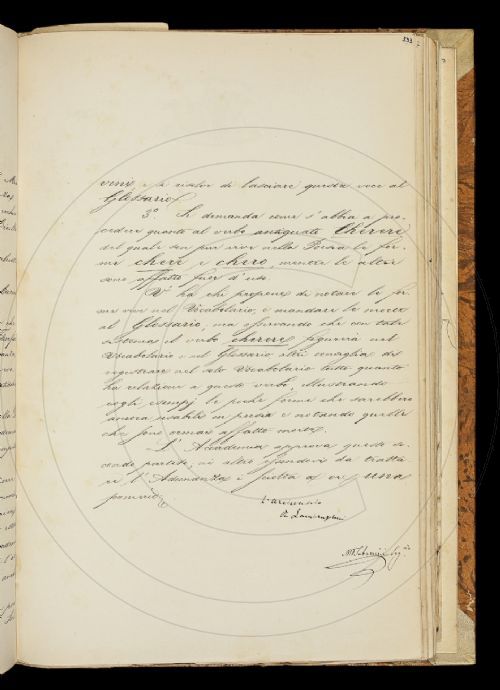 393
venir, e si risolve di lasciare questa voce al
Glossario.
3° Si domanda come s'abbia a pro-
cedere quanto al verbo antiquato Cherere
del quale son pur vive nella Poesia le for-
me chere e chero, mentre le altre
sono affatto fuor d'uso.
V'ha chi propone di notare le for-
me vive nel Vocabolario, e mandare le morte
al Glossario, ma osservando che con tale
sistema il verbo cherere figurerà nel
Vocabolario e nel Glossario altri consiglia di
registrare nel solo Vocabolario tutto quanto
ha relazione a questo verbo, illustrando
cogli esempj le poche forme che sarebbero
ancora usabili in poesia e notando quelle
che sono ormai affatto morte.
L'Accademia approva questo se-
condo partito, nè altro essendovi da tratta-
re l'Adunanza è sciolta a ore una
pomerid.
L'Arciconsolo